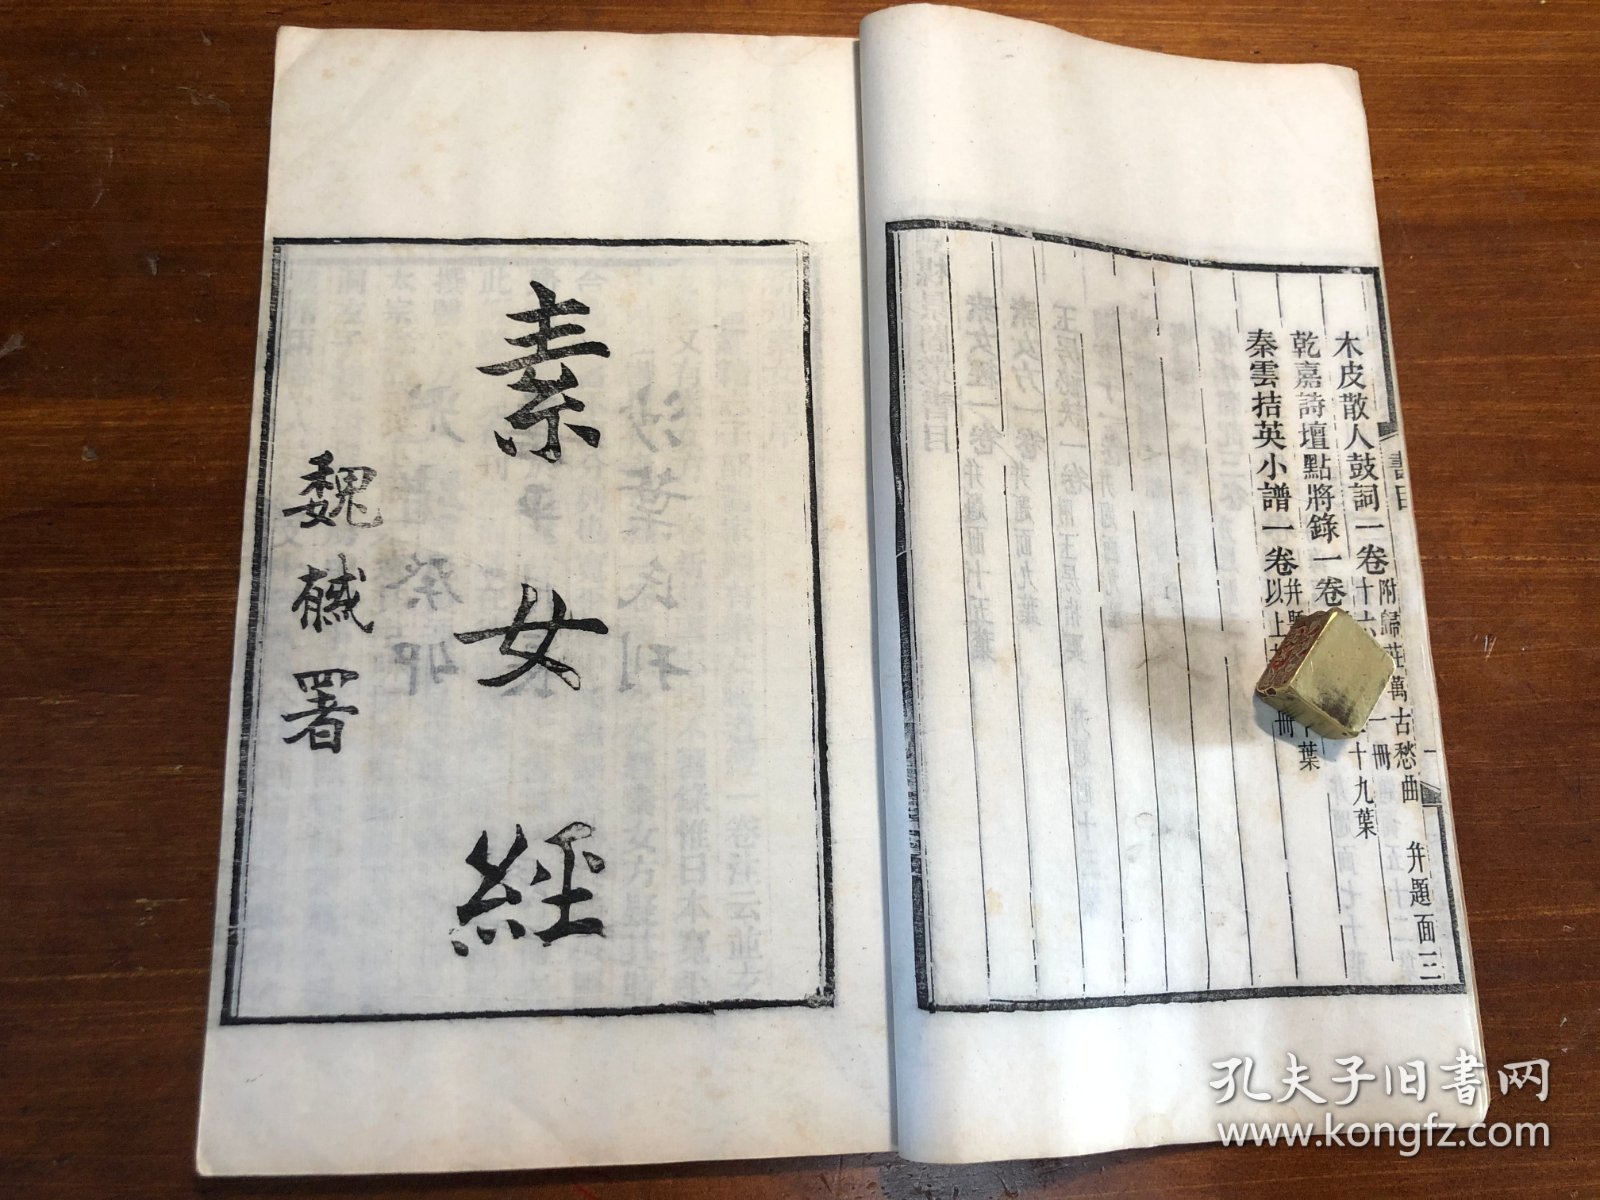 木皮散人鼓詞一卷附歸莊萬古愁曲 幷題面三
十六 一冊
乾嘉詩壇點將錄一卷 十九葉
秦雲拮英小譜一卷幷題 葉
以上 冊
書目
素女經
魏棫署
孔夫子旧书网
www.kongfz.com